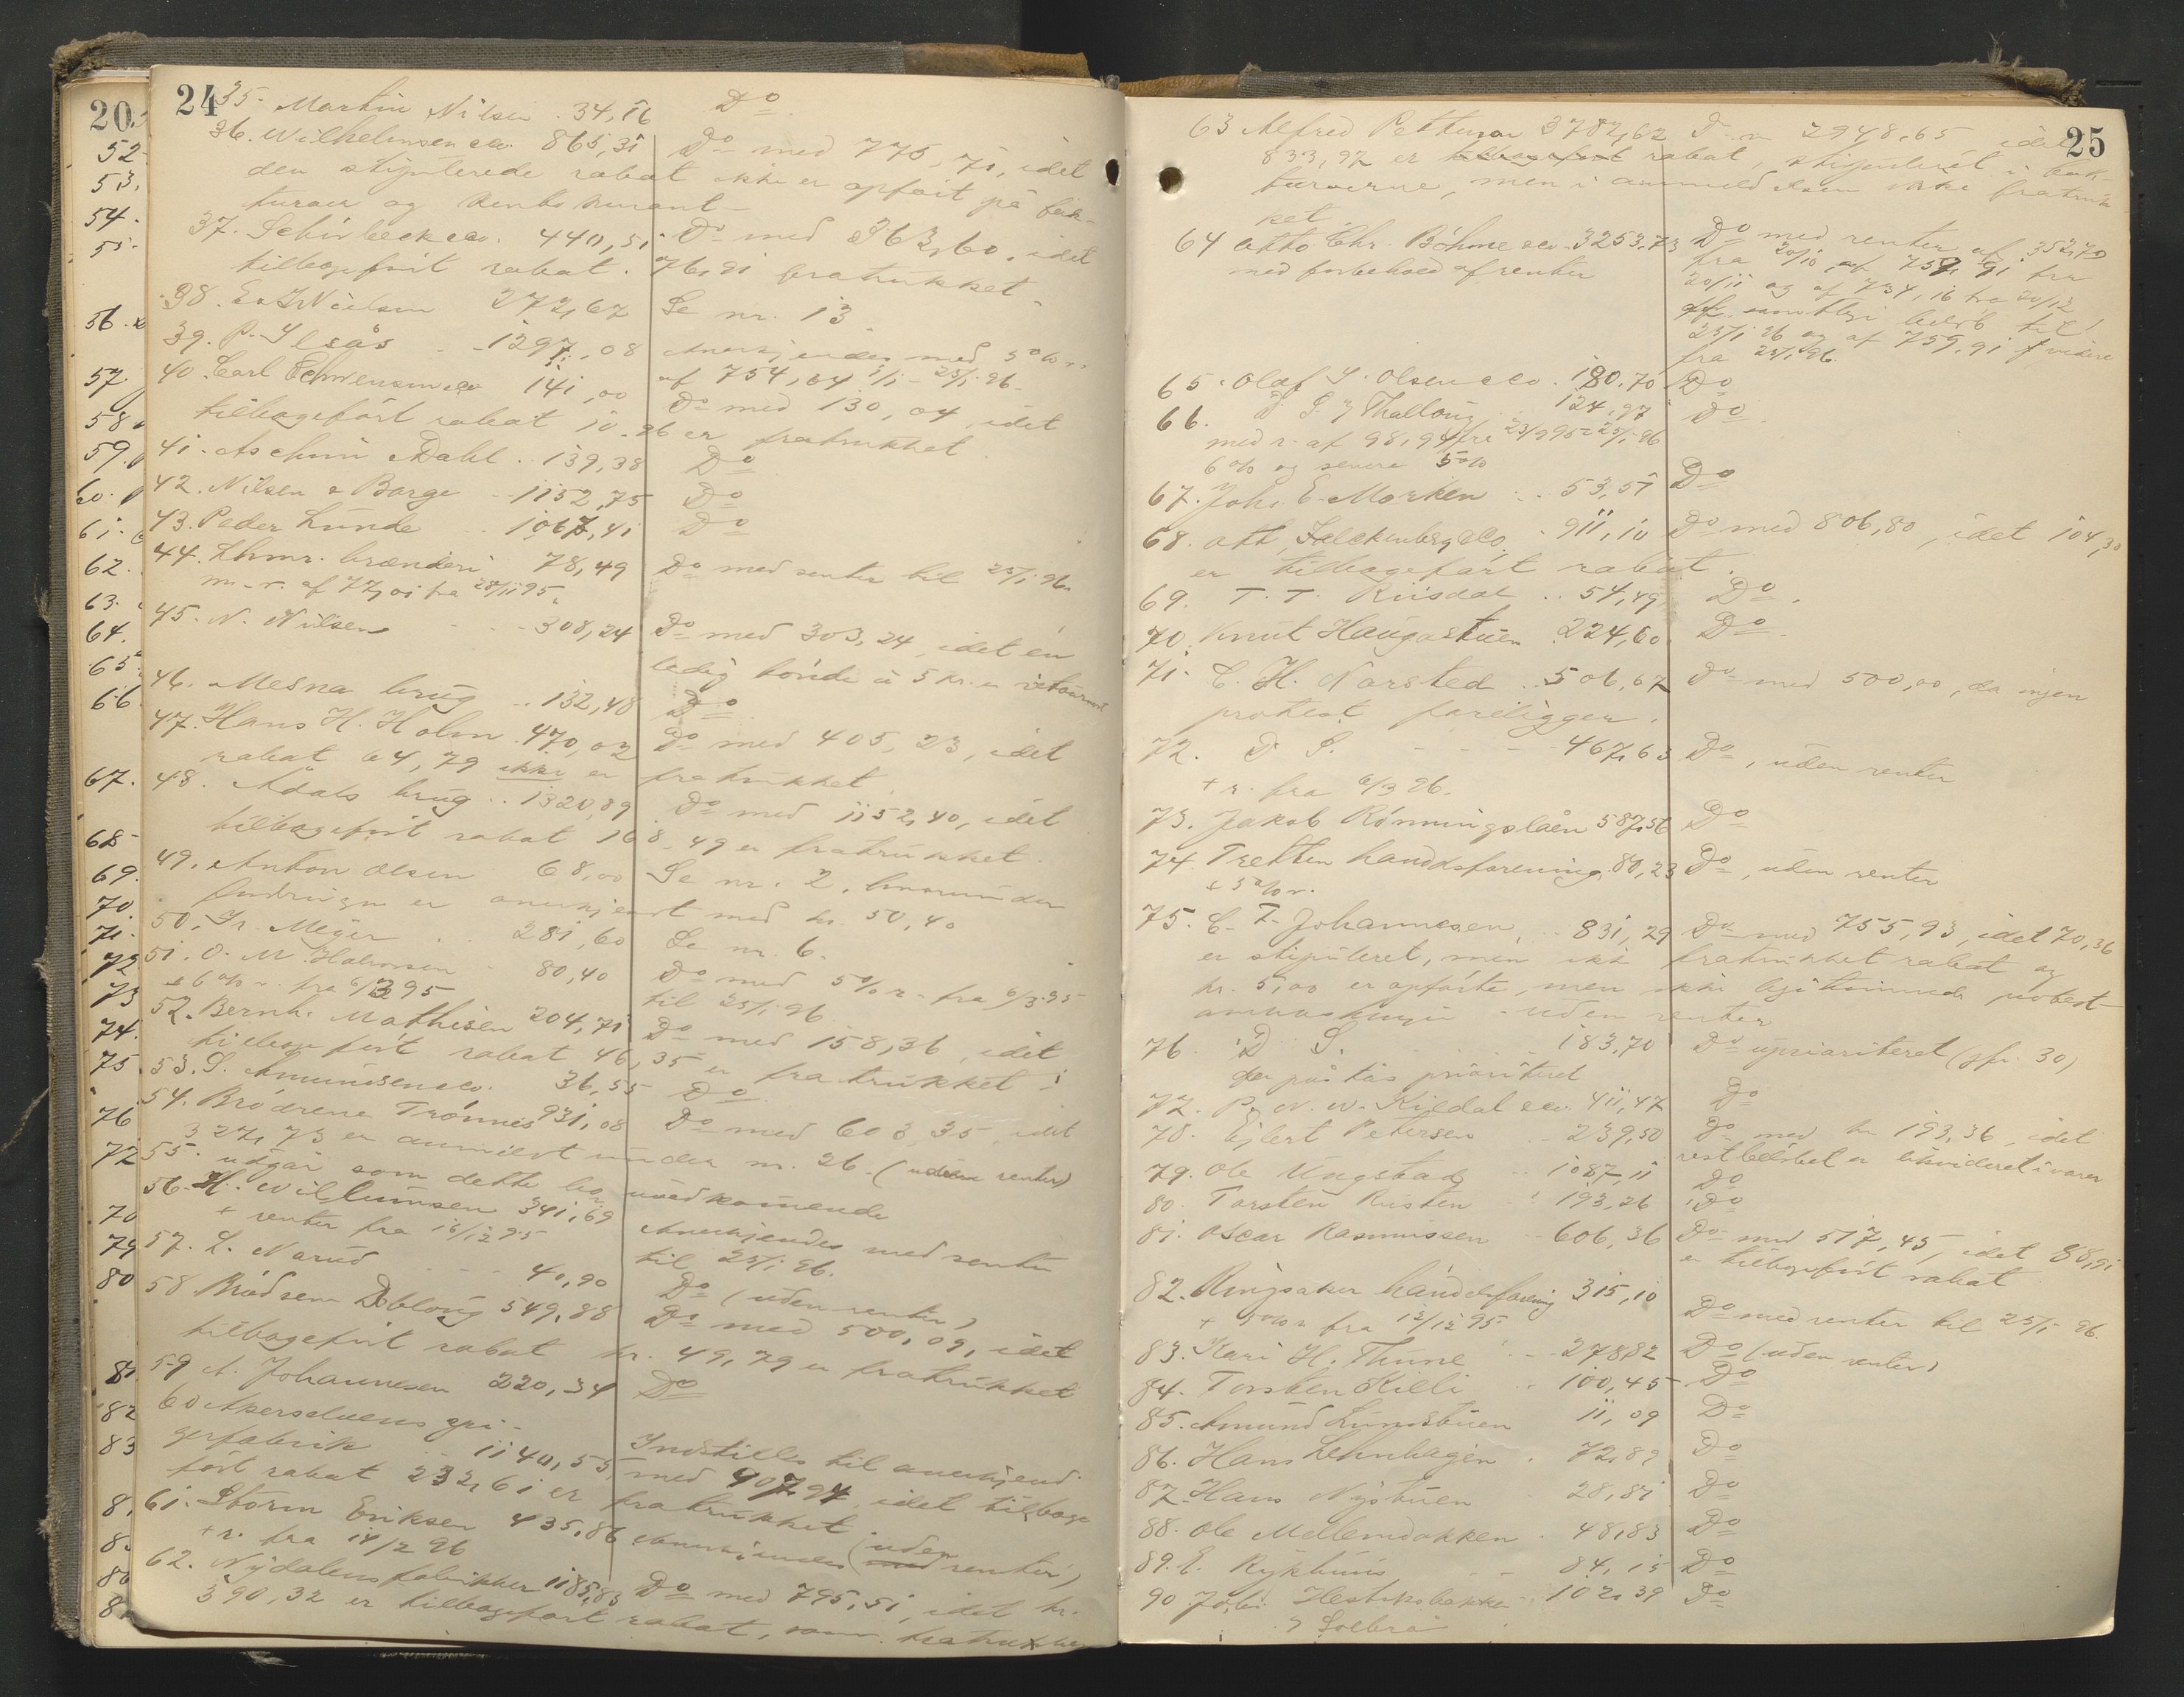 20
52
53.
54.
55.
56.
57.
58
59.
60.
61.
62.
63.
64.
65
66
67.
68
69.
70.
71.
72
73
74.
75
76
77
78
79
80
81
82
83
24
35. Martin Nilsen . 34,16 Do
36. Wilhelmsen & co. 865,31 Do med 775,71, idet
den stipulerede rabat ikke er opført på fak-
turaer og kontokurant
37. Schirbeck & co. 440,51 Do med 363,60, idet
tilbageført rabat. 76,91 fratrukket.
38. E. & J. Nielsen 272,67 Se nr. 13
39. P. Ilsås . . 1297,08 Anerkjendes med 5 % r.
40. Carl Schwensen & co 141,00 af 754,64 1/1 - 25/1 96.
Do med 130,04, idet
tilbageført rabat 10.96 er fratrukket.
41. Aschim Dahl . . 139,38 Do
42. Nilsen & Borge . . 1152,75 Do
43. Peder Lunde . 1067,41 Do
44. Lhmr. brænderi 78,49 Do med renter til 25/1 96.
m. r. af 77,01 fra 28/11 95.
45. N. Nilsen . . . 308,24 Do med 303,24, idet en
ledig tønde à 5 kr. er retourneret
46. Mesna brug . . 132,48 Do
47. Hans H. Holm . 470,02 Do med 405,23, idet
rabat 64,79 ikke er fratrukket.
48. Ådals brug . . 1320,89 Do med 1152,40, idet
tilbageført rabat 168,49 er fratrukket.
49. Anton Olsen 68,00 Se nr. 2, hvorunder
fordringen er anerkjendt med kr. 50,40
50. Fr. Meyer . . 281,60 Se nr. 6.
51. O. M. Halvorsen . 80,40 Do med 5 % r. fra 6/3 95
+ 6 % r. fra 6/3 95 til 25/1 96
52. Bernh. Mathisen 204,71 Do med 158,36, idet
tilbageført rabat 46,35 er fratrukket
53. S. Amundsen & co. 36,55 Do
54. Brødrene Trønnes 931,08 Do med 603,35, idet
327,73 er anmeldt under nr. 26. (uden renter)
55. udgår som dette bo uvedkomende
56. H. Willumsen 341,69 Anerkjendes med renter
+ renter fra 16/12 95 til 25/1 96.
57. L. Narud . . . 40,90 Do (uden renter)
58 Brødrene Dobloug 549,88 Do med 500,09, idet
tilbageført rabat kr. 49,79 er fratrukket
59 A. Johannesen 220,34 Do
60 Akerselvens spi-
gerfabrik . . 1140,55 Indstilles til anerkjend.
med 907,94, idet tilbage
ført rabat 232,61 er fratrukket
61. Storm Eriksen 435,86 Anerkjendes (uden renter)
+ r. fra 14/2 96
62. Nydalens fabrikker 1185,83 Do med 795,51, idet kr.
390,32 er tilbageført rabat, som fratrukket
25
63 Alfred Pettersen 3782,62 D. m 2948,65 idet
833,97 er tilbageført rabat, stipuleret i fak-
turaerne, men i anmeldelsen ikke fratruk-
ket
64 Otto Chr. Bøhme & co . 3253,73 Do med renter af 352,70
med forbehold af renter fra 20/10, af 759,91 fra
20/11 og af 734,16 fra 20/12
alt samtlige beløb til
25/1 96 og af 759,91 videre
fra 25/1 96.
65. Olaf S. Olsen & co . 180,70 Do
66. D. S. Thalloug . . 124,97 Do
med r. af 98,94 fra 23/9 95 - 25/1 96
6 % og senere 5 %
67. Johs. E. Morken . . 53,51 Do
68. Ott. Falckenberg & co . 911,10 Do med 806,80, idet 104,30
er tilbageført rabat.
69. T. T. Riisdal . . 54,49 Do.
70. Knut Haugastuen 224,60 Do.
71. C. H. Narsted . . 506,67 Do med 500,00, da ingen
protest foreligger.
72. D. S. . . . . 467,63 Do, uden renter
+ r. fra 6/3 96.
73. Jakob Rønningslåen 587,56 Do
74. Tretten handelsforening. 80,23 Do, uden renter
+ 5 % r.
75. C. T. Johannesen . . 831,29 Do med 755,93, idet 70,36
er stipuleret, men ikke fratrukket rabat og
kr. 5,00 er opførte, men ikke legitimerede protest
omkostninger - uden renter
76. D. S. 183,70 Do uprioriteret (jfr. 30)
der påstås prioriteret
77. P. N. W. Kildal & co. 411,47 Do
78. Ejlert Petersen . . 239,50 Do med kr 193,36, idet
restbeløbet er likvideret i varer
79. Ole Ungstad . . 1087,11 Do
80. Torsten Rusten . . 193,26 Do
81. Oscar Rasmussen . . 606,36 Do med 517,45, idet 88,91
er tilbageført rabat
82. Ringsaker handelsforening 315,10 Do med renter til 25/1 96.
+ 5 % r fra 12/12 95
83. Kari H. Thune . . . 278,82 Do (uden renter)
84. Torsten Killi . . 100,45 Do
85. Amund Lundstuen 11,09 Do
86. Hans Lehnhagen . 72,89 Do
87. Hans Nystuen 28,81 Do
88. Ole Mellemdokken . 48,83 Do
89. E. Rykhus . . 84,15 Do
90. Johs. 102,39 Do